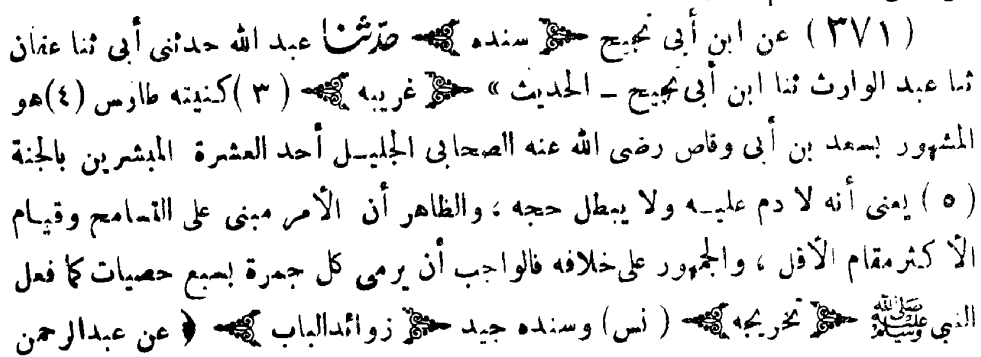 ( ٣٧١ ) عن ابن أبي نجيح ﴿ سنده ﴾ حدثنا عبد الله حدثنى أبى ثنا عفان
ثنا عبد الوارث ثنا ابن أبى نجيح ـ الحديث » ﴿ غريبه ﴾ ( ٣ ) كنيته طاوس (٤) هو
المشهور بسعد بن أبى وقاص رضى الله عنه الصحابى الجليـل أحد العشرة المبشرين بالجنة
( ٥ ) يعنى أنه لا دم عليـه ولا يبطل حجه ، والظاهر أن الأمر مبنى على التسامح وقيـام
الأكثر مقام الأقل ، والجمهور على خلافه فالواجب أن يرمى كل جمرة بسبع حصيات كما فعل
النبى ﷺ ﴿ تخريجه ﴾ ( نس ) وسنده جيد ﴿ زوائد الباب ﴾ ﴿ عن عبد الرحمن